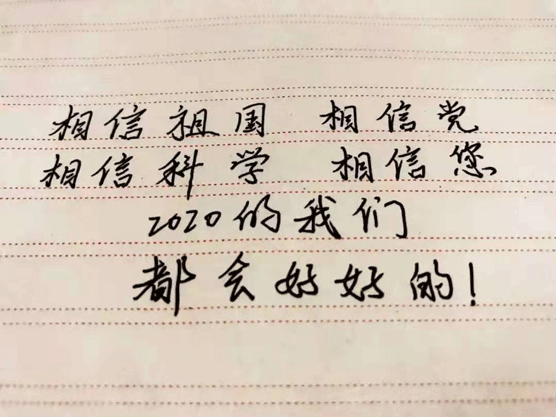 相信祖国 相信党
相信科学 相信您
2020的我们
都会好好的!